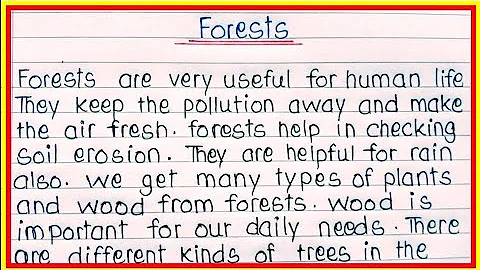 Forests
Forests are very useful for human life
They keep the pollution away and make
the air fresh. forests help in checking
soil erosion. They are helpful for rain
also. we get many types of plants
and wood from forests. wood is
important for our daily needs. There
are different kinds of trees in the